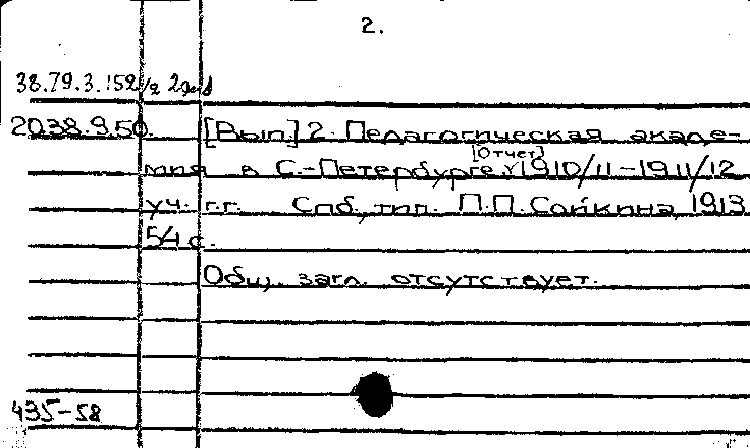 2.
38.79.3.152/2 2экз
2038.9.50. [Вып.] 2. Педагогическая акаде-
мия в С.-Петербурге. [Отчет] 1910/11-1911/12
уч. г.г. Спб, тип. П.П.Сойкина, 1913
54 с.
Общ. загл. отсутствует.
435-58